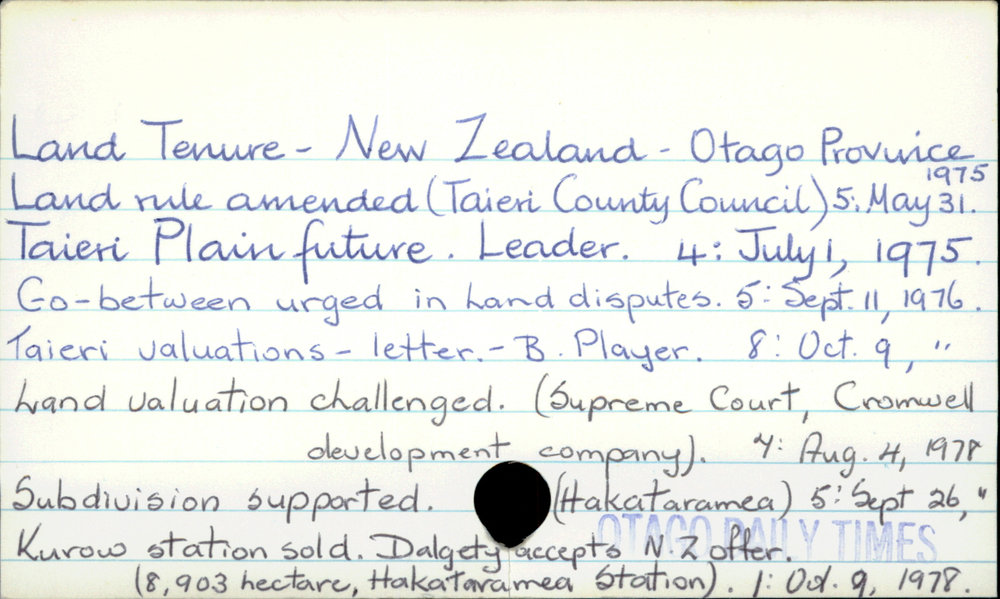 Land Tenure - New Zealand - Otago Province
Land rule amended (Taieri County Council) 5: May 31. 1975
Taieri Plain future. Leader. 4: July 1, 1975.
Go-between urged in land disputes. 5: Sept. 11, 1976.
Taieri valuations - letter. - B. Player. 8: Oct. 9, "
Land valuation challenged. (Supreme Court, Cromwell
development company). 4: Aug. 4, 1978
Subdivision supported. (Hakataramea) 5: Sept 26, "
OTAGO DAILY TIMES
Kurow station sold. Dalgety accepts N.Z offer.
(8,903 hectare, Hakataramea Station). 1: Oct. 9, 1978.